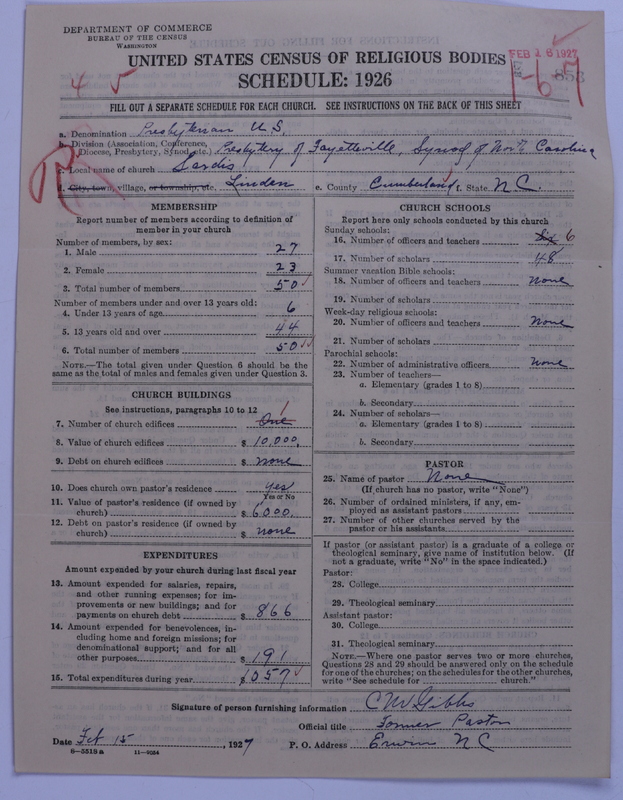 DEPARTMENT OF COMMERCE
BUREAU OF THE CENSUS
WASHINGTON
FEB 18 1927
UNITED STATES CENSUS OF RELIGIOUS BODIES
SCHEDULE: 1926
4 5
FILL OUT A SEPARATE SCHEDULE FOR EACH CHURCH. SEE INSTRUCTIONS ON THE BACK OF THIS SHEET
a. Denomination Presbyterian U.S.
b. Division (Association, Conference, Diocese, Presbytery, Synod, etc.) Presbytery of Fayetteville, Synod of North Carolina
c. Local name of church Sardis
d. City, town, village, or township, etc. Linden e. County Cumberland f. State N.C.
MEMBERSHIP
Report number of members according to definition of
member in your church
Number of members, by sex:
1. Male 27
2. Female 23
3. Total number of members 50
Number of members under and over 13 years old:
4. Under 13 years of age 6
5. 13 years old and over 44
6. Total number of members 50
NOTE.—The total given under Question 6 should be the
same as the total of males and females given under Question 3.
CHURCH BUILDINGS
See instructions, paragraphs 10 to 12
7. Number of church edifices One 1
8. Value of church edifices $ 10,000.
9. Debt on church edifices $ none
10. Does church own pastor's residence yes
Yes or No
11. Value of pastor's residence (if owned by
church) $ 6000.
12. Debt on pastor's residence (if owned by
church) $ none
EXPENDITURES
Amount expended by your church during last fiscal year
13. Amount expended for salaries, repairs,
and other running expenses; for im-
provements or new buildings; and for
payments on church debt $ 866
14. Amount expended for benevolences, in-
cluding home and foreign missions; for
denominational support; and for all
other purposes $ 191
15. Total expenditures during year $ 1057
CHURCH SCHOOLS
Report here only schools conducted by this church
Sunday schools:
16. Number of officers and teachers Six 6
17. Number of scholars 48
Summer vacation Bible schools:
18. Number of officers and teachers none
19. Number of scholars
Week-day religious schools:
20. Number of officers and teachers none
21. Number of scholars
Parochial schools:
22. Number of administrative officers none
23. Number of teachers—
a. Elementary (grades 1 to 8)
b. Secondary
24. Number of scholars—
a. Elementary (grades 1 to 8)
b. Secondary
PASTOR
25. Name of pastor None
(If church has no pastor, write "None")
26. Number of ordained ministers, if any, em-
ployed as assistant pastors
27. Number of other churches served by the
pastor or his assistants
If pastor (or assistant pastor) is a graduate of a college or
theological seminary, give name of institution below. (If
not a graduate, write "No" in the space indicated.)
Pastor:
28. College
29. Theological seminary
Assistant pastor:
30. College
31. Theological seminary
NOTE.—Where one pastor serves two or more churches,
Questions 28 and 29 should be answered only on the schedule
for one of the churches; on the schedules for the other churches,
write "See schedule for church."
Signature of person furnishing information C W Gibbs
Official title Former Pastor
Date Feb 15, 1927 P. O. Address Erwin N C
8-5518a 11-9054